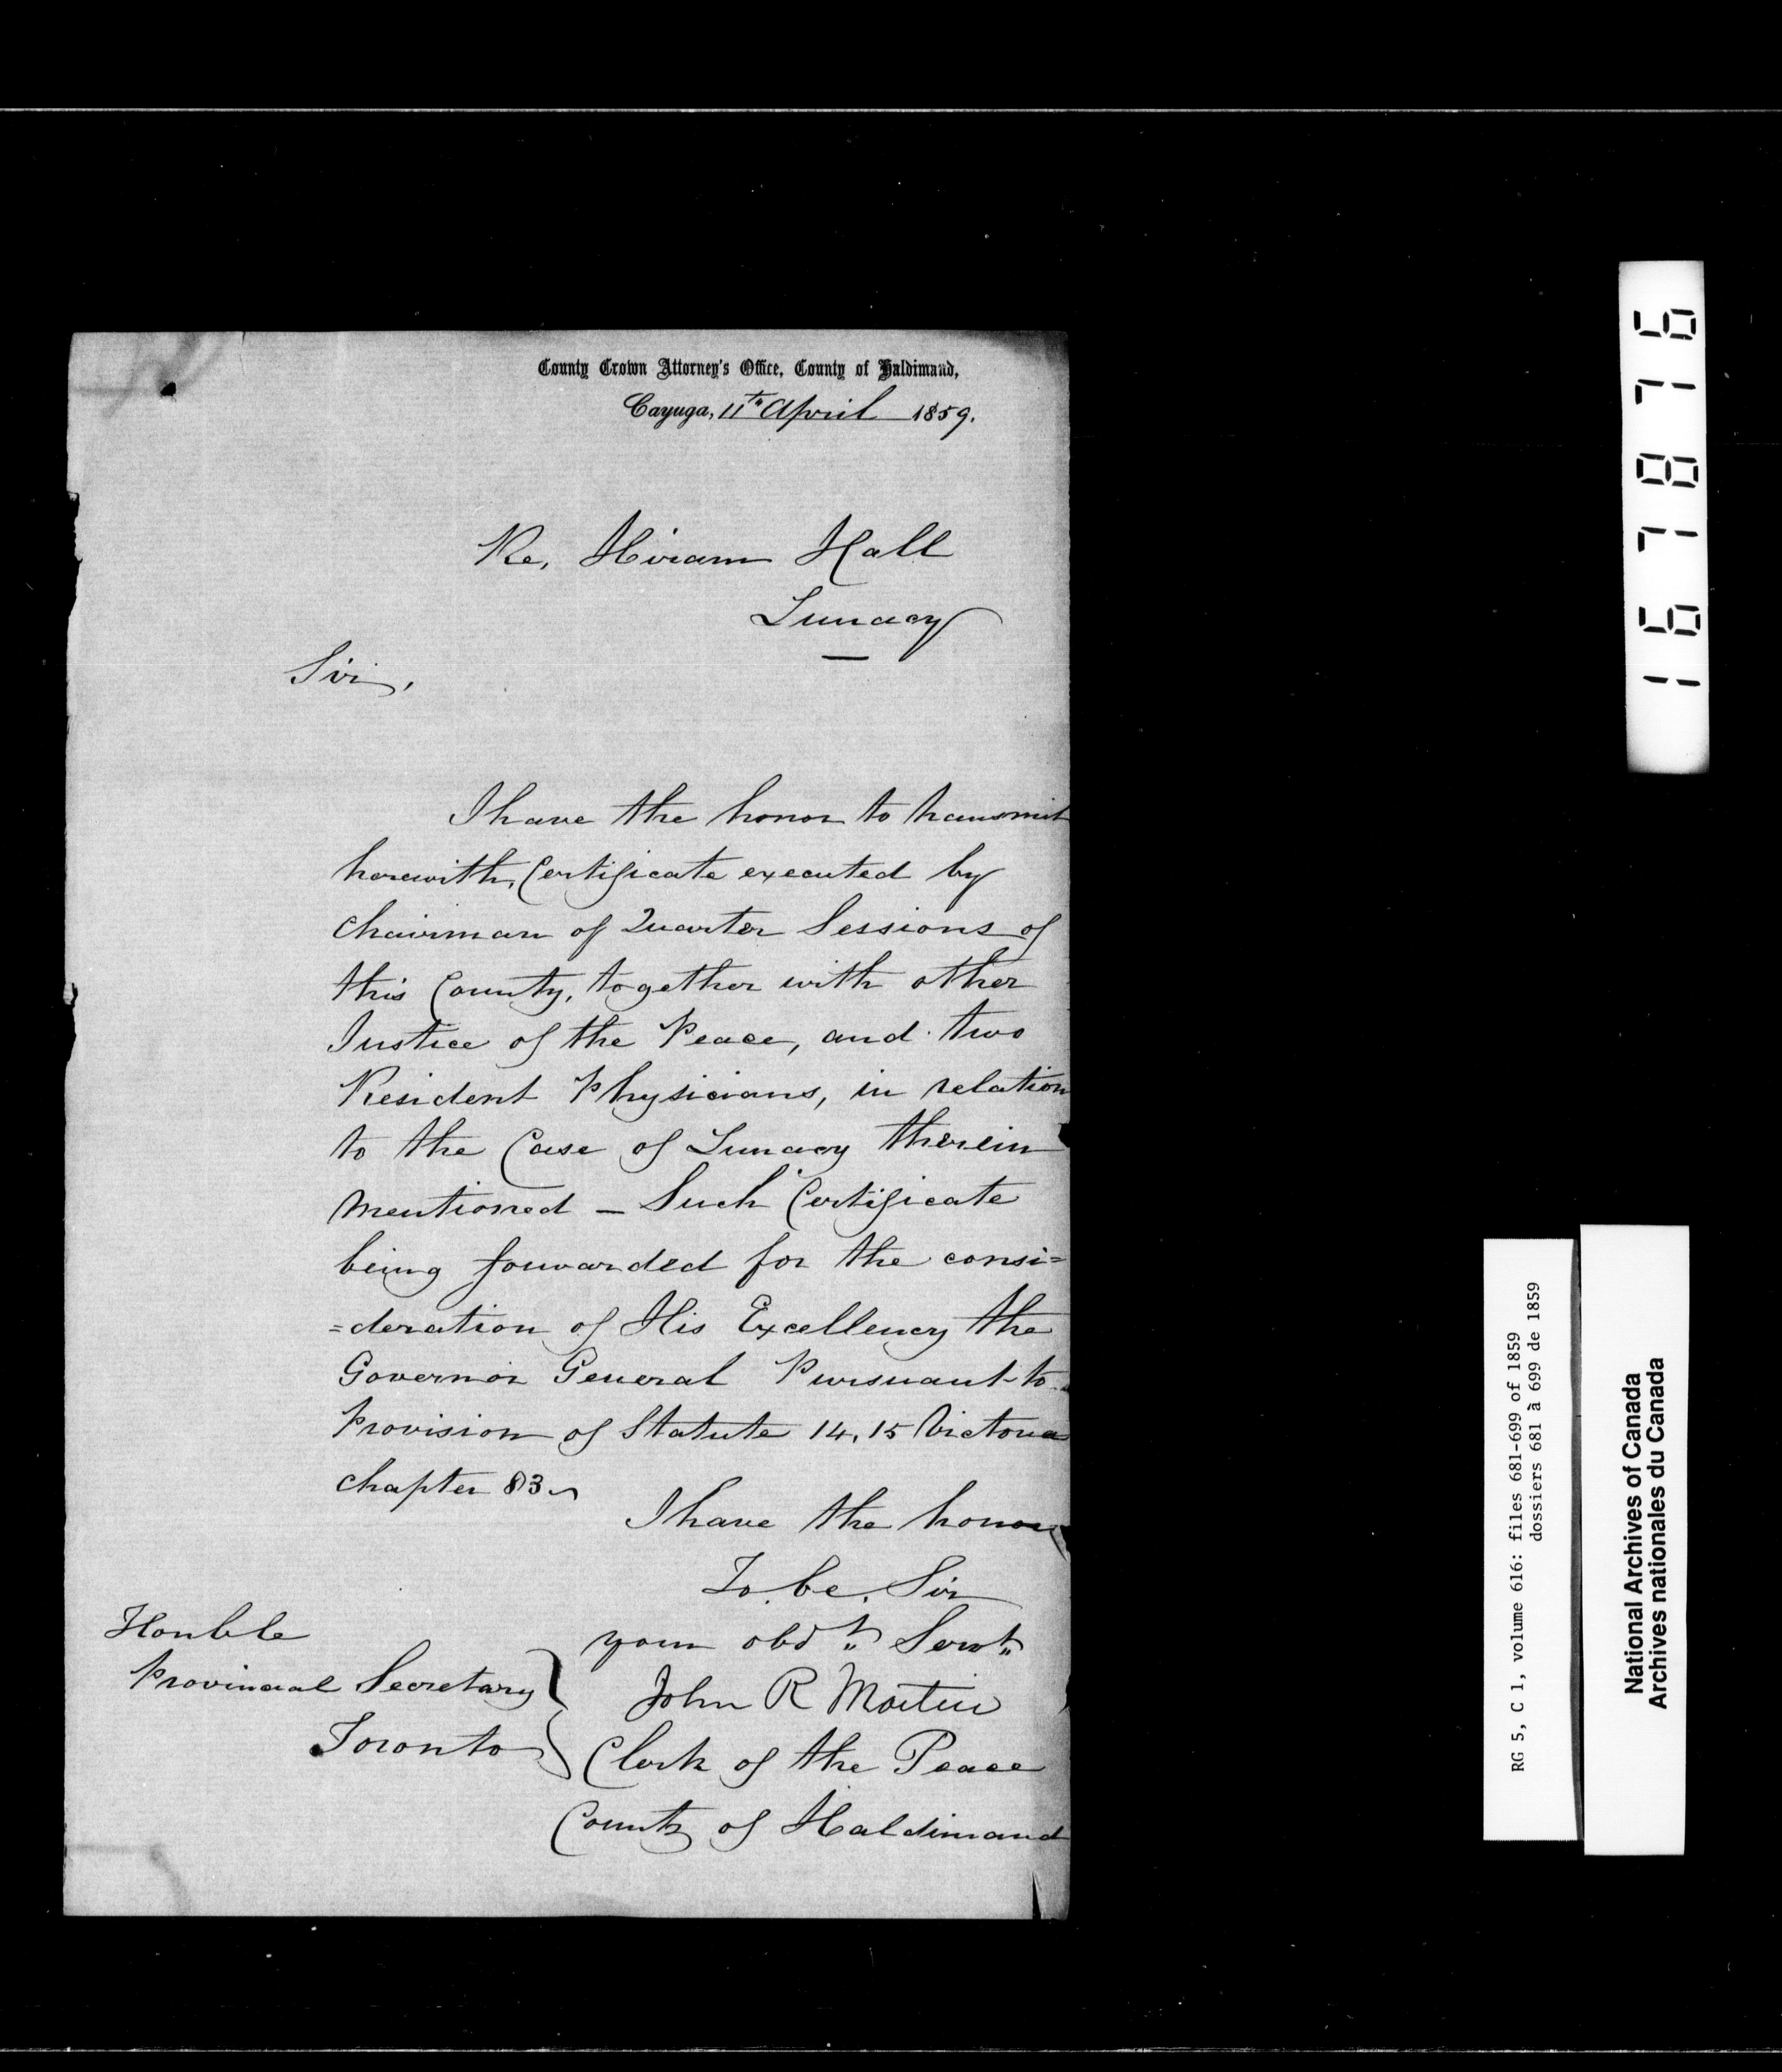 County Crown Attorney's Office, County of Haldimand,
Cayuga, 11th April 1859.
Re, Hiram Hall
Lunacy
Sir,
I have the honor to transmit
herewith, Certificate executed by
Chairman of Quarter Sessions of
this County, together with other
Justice of the Peace, and two
Resident Physicians, in relation
to the Case of Lunacy therein
mentioned – Such Certificate
being forwarded for the consi=
=deration of His Excellency the
Governor General Pursuant to
Provision of Statute 14, 15 Victoria
chapter 83
I have the honor
To be, Sir
your obdt Servt
John R Martin
Clerk of the Peace
County of Haldimand
Honble
Provincial Secretary
Toronto
167876
RG 5, C 1, volume 616: files 681-699 of 1859
dossiers 681 à 699 de 1859
National Archives of Canada
Archives nationales du Canada